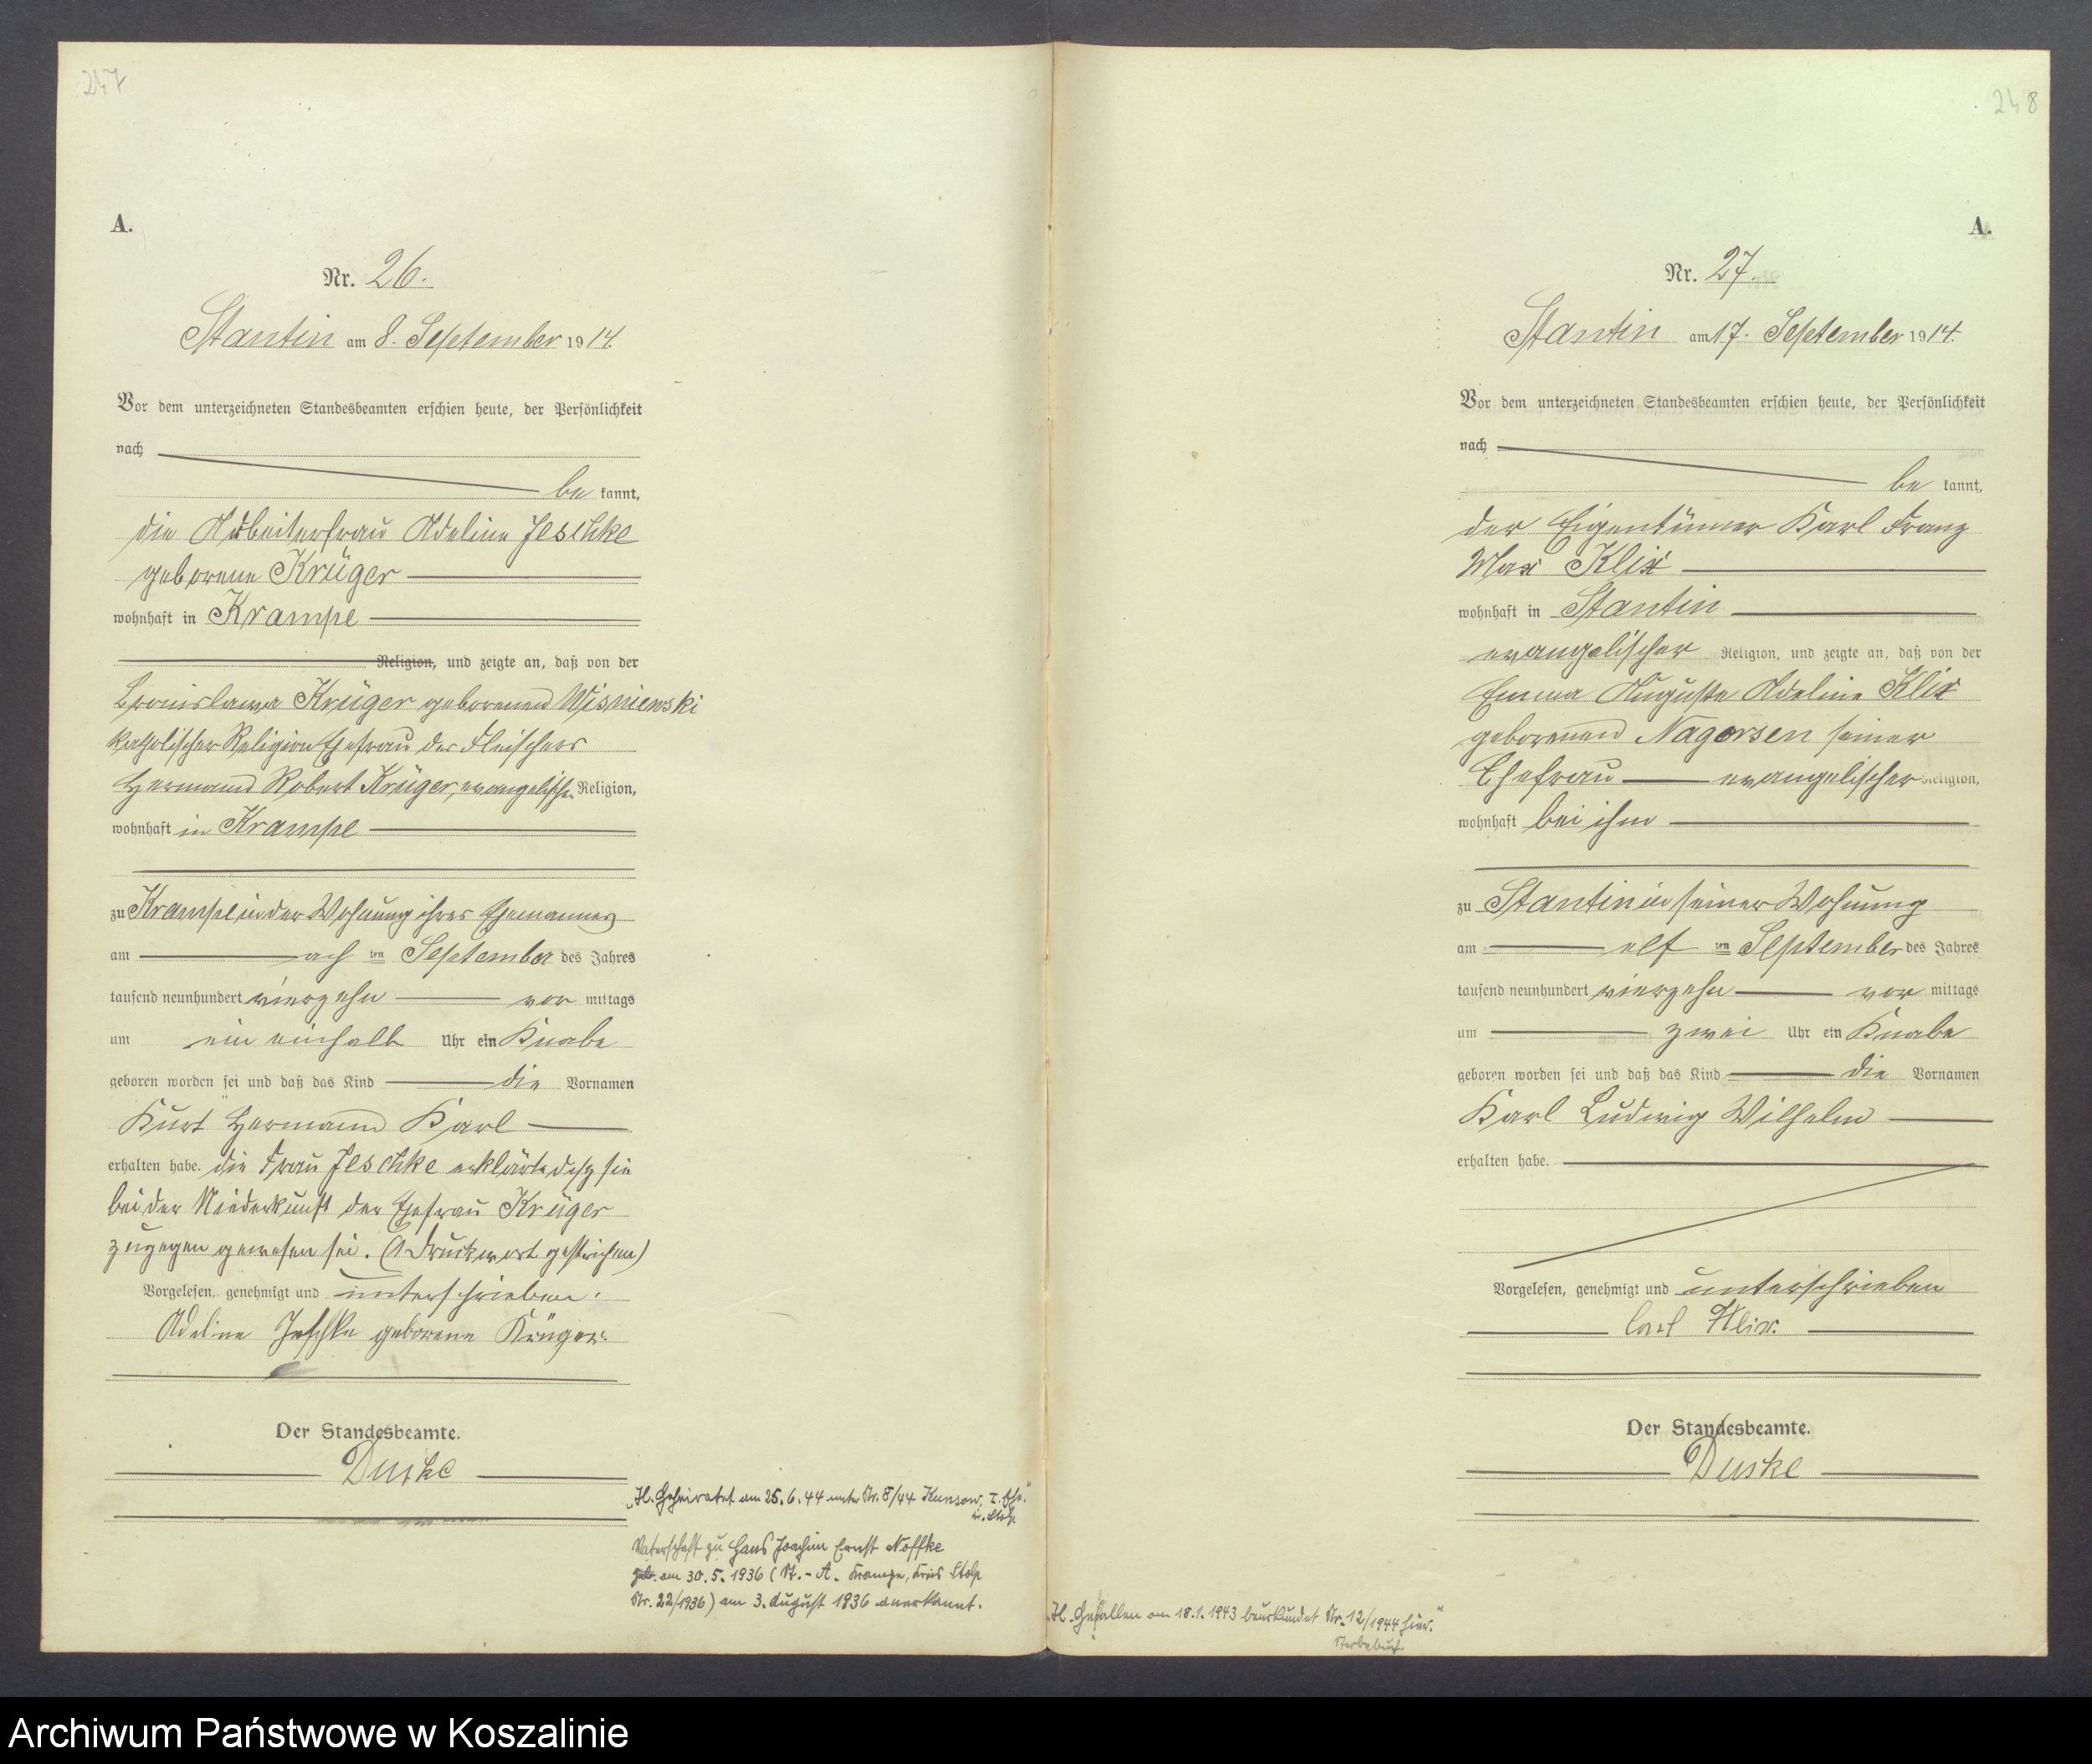 247
A.
Nr. 26.
Stantin am 8. September 1914.
Vor dem unterzeichneten Standesbeamten erschien heute, der Persönlichkeit
nach
be kannt,
die Arbeiterfrau Adeline Jeschke
geborene Krüger
wohnhaft in Krampe
Religion, und zeigte an, daß von der
Bronislawa Krüger geborenen Wisniewski
katholischer Religion Ehefrau des Fleischers
Hermann Robert Krüger, evangelischer Religion,
wohnhaft in Krampe
zu Krampe in der Wohnung ihres Ehemannes
am ach ten September des Jahres
tausend neunhundert vierzehn vor mittags
um ein einhalb Uhr ein Knabe
geboren worden sei und daß das Kind die Vornamen
Kurt Hermann Karl
erhalten habe. die Frau Jeschke erklärte daß sie
bei der Niederkunft der Ehefrau Krüger
zugegen gewesen sei. (1 Druckwort gestrichen)
Vorgelesen, genehmigt und unterschrieben.
Adeline Jeschke geborene Krüger.
Der Standesbeamte.
Duske
„H. Geheiratet am 25.6.44 unter Nr. 8/44 Kunsow, I. Ehe."
Vaterschaft zu Hans Joachim Ernst Noffke
geb. am 30.5.1936 (St.-A. Krampe, Kreis Stolp
Nr. 22/1936) am 3. August 1936 anerkannt.
248
A.
Nr. 27.
Stantin am 17. September 1914.
Vor dem unterzeichneten Standesbeamten erschien heute, der Persönlichkeit
nach
be kannt,
der Eigentümer Karl Franz
Max Klix
wohnhaft in Stantin
evangelischer Religion, und zeigte an, daß von der
Emma Auguste Adeline Klix
geborenen Nagorsen seiner
Ehefrau evangelischer Religion,
wohnhaft bei ihm
zu Stantin in seiner Wohnung
am elf ten September des Jahres
tausend neunhundert vierzehn vor mittags
um zwei Uhr ein Knabe
geboren worden sei und daß das Kind die Vornamen
Karl Ludwig Wilhelm
erhalten habe.
Vorgelesen, genehmigt und unterschrieben
Carl Klix.
Der Standesbeamte.
Duske
„H. Gefallen am 18.1.1943 beurkundet Nr. 12/1944 hies."
Sterbebuch.
Archiwum Państwowe w Koszalinie